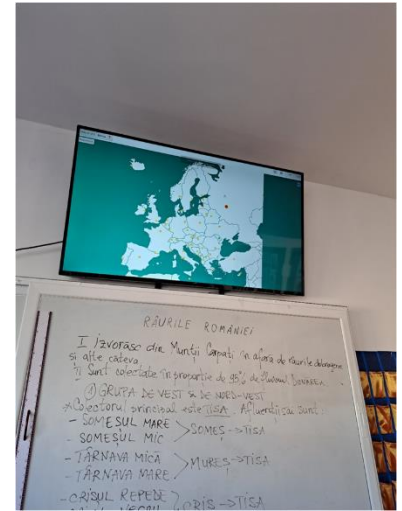 RÂURILE ROMÂNIEI
I Izvorăsc din Munții Carpați în afară de râurile dobrogene
și alte câteva
Sunt colectate în proporție de 98% de fluviul DUNĂREA
① GRUPA DE VEST ȘI DE NORD-VEST
Colectorul principal este TISA. Afluenții săi sunt:
- SOMEȘUL MARE
> SOMEȘ → TISA
- SOMEȘUL MIC
- TÂRNAVA MICĂ
> MUREȘ → TISA
- TÂRNAVA MARE
- CRIȘUL REPEDE
CRIS → TISA